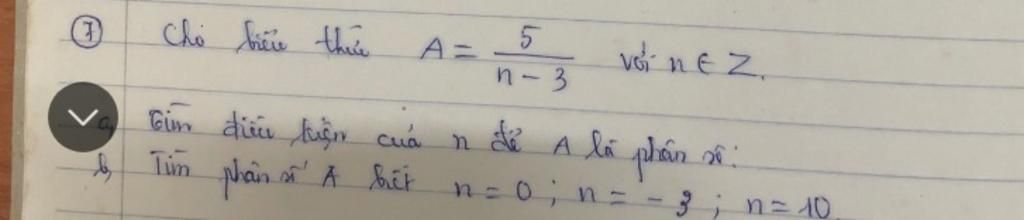 7 Cho biểu thức A = 5/(n - 3) với n ∈ Z.
a, Tìm điều kiện của n để A là phân số:
b, Tìm phân số A biết n = 0 ; n = -3 ; n = 10